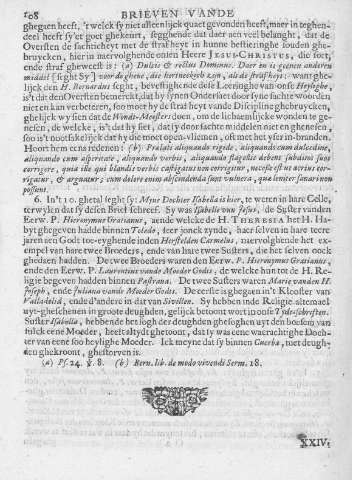 108 BRIEVEN VANDE
ghegaen heeft, 't welck sy niet alleenlijck quaet gevonden heeft, maer in teghen-
deel heeft sy'er goet ghekeurt, segghende dat daer aen veel belanght, dat de
Oversten de sachticheyt met de straf heyt in hunne bestieringhe souden ghe-
bruycken, hier in naervolghende onsen Heere JESUS-CHRISTUS, die soet,
ende straf gheweest is: (a) Dulcis & rectus Dominus. Daer en is gheenen anderen
middel [seght Sy] voor de ghene, die hertneckerh zijn, als de straf heyt: want ghe-
lijck den H. Bernardus seght, bevestighende dese Leeringhe van onse Heylighe,
is 't dat den Oversten bemerckt, dat by synen Onderdaer door sijn sachte woorden
niet en kan verbeteren, soo moet hy de straf heyt vande Discipline ghebruycken,
ghelijck wy sien dat de Wonde-Meester doen, om de lichaemlijcke wonden te ge-
nesen, de welcke, is't dat hy siet, dat sy door sachte middelen niet en ghenesen,
soo is't nootsakelijck dat hy die moet open-vliemen, oft met het yser in-branden.
Hoort hem eens redenen: (b) Prelatus aliquando rigide, aliquando cum dulcedine,
aliquando cum asperitate, aliquando verbis, aliquando flagellis debent subditos suos
corrigere, quia ille qui blandis verbis castigatus non corrigitur, necesse est ut acrius cor-
rigatur, & arguatur; cum dolore enim abscindenda sunt vulnera, quæ leniter sanari non
possunt.
6. In't 10. ghetal seght sy: Myne Dochter Isabella is hier, te weten in hare Celle,
terwylen dat sy desen Brief schreef. Sy was Isabelle van Jesus, de Suster vanden
Eerw. P. Hieronymus Gratianus, aende welcke de H. THERESIA het H. Ha-
byt ghegeven hadde binnen Toledo, seer jonck zynde, haer selven in hare teere
jaren aen Godt toe-eyghende inden Herstelden Carmelus, naervolghende het ex-
empel van hare twee Broeders, ende van hare twee Susters, die het selven oock
ghedaen hadden. De twee Broeders waren den Eerw. P. Hieronymus Gratianus,
ende den Eerw. P. Laurentius vande Moeder Godts, de welcke hun tot de H. Re-
ligie begeven hadden binnen Pastrana. De twee Susters waren Marie vanden H.
Joseph, ende Juliana vande Moeder Godts. De eerste is ghegaen in't Klooster van
Valladolid, ende d'andere in dat van Sivillen. Sy hebben inde Religie altemael
uyt-ghescheenen in groote deughden, gelijck betoont wort in onse Tyde-schriften.
Suster Isabella, hebbende het sogh der deughden ghesoghen uyt den boesem van
sulcke eene Moeder, heeft altydt ghetoont, dat sy was eene waerachtighe Doch-
ter van eene soo heylighe Moeder. Ick meyne dat sy binnen Cuerba, met deugh-
den ghekroont, ghestorven is.
(a) Ps. 24. ℣. 8. (b) Bern. lib. de modo vivendi Serm. 18.
XXIV.